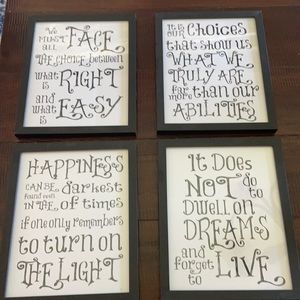 We
MUST FACE
all
THE CHOICE between
what RIGHT
is
and
what EASY
is
It is
our CHOICES
that show us
WHAT WE
TRULY ARE
far
more than our
ABILITIES
HAPPINESS
CAN BE darkest
found even
IN THE of times
if one only remembers
to turn on
THE LIGHT
It Does
NOT do
to
DWELL on
DREAMS
and
forget LIVE
to